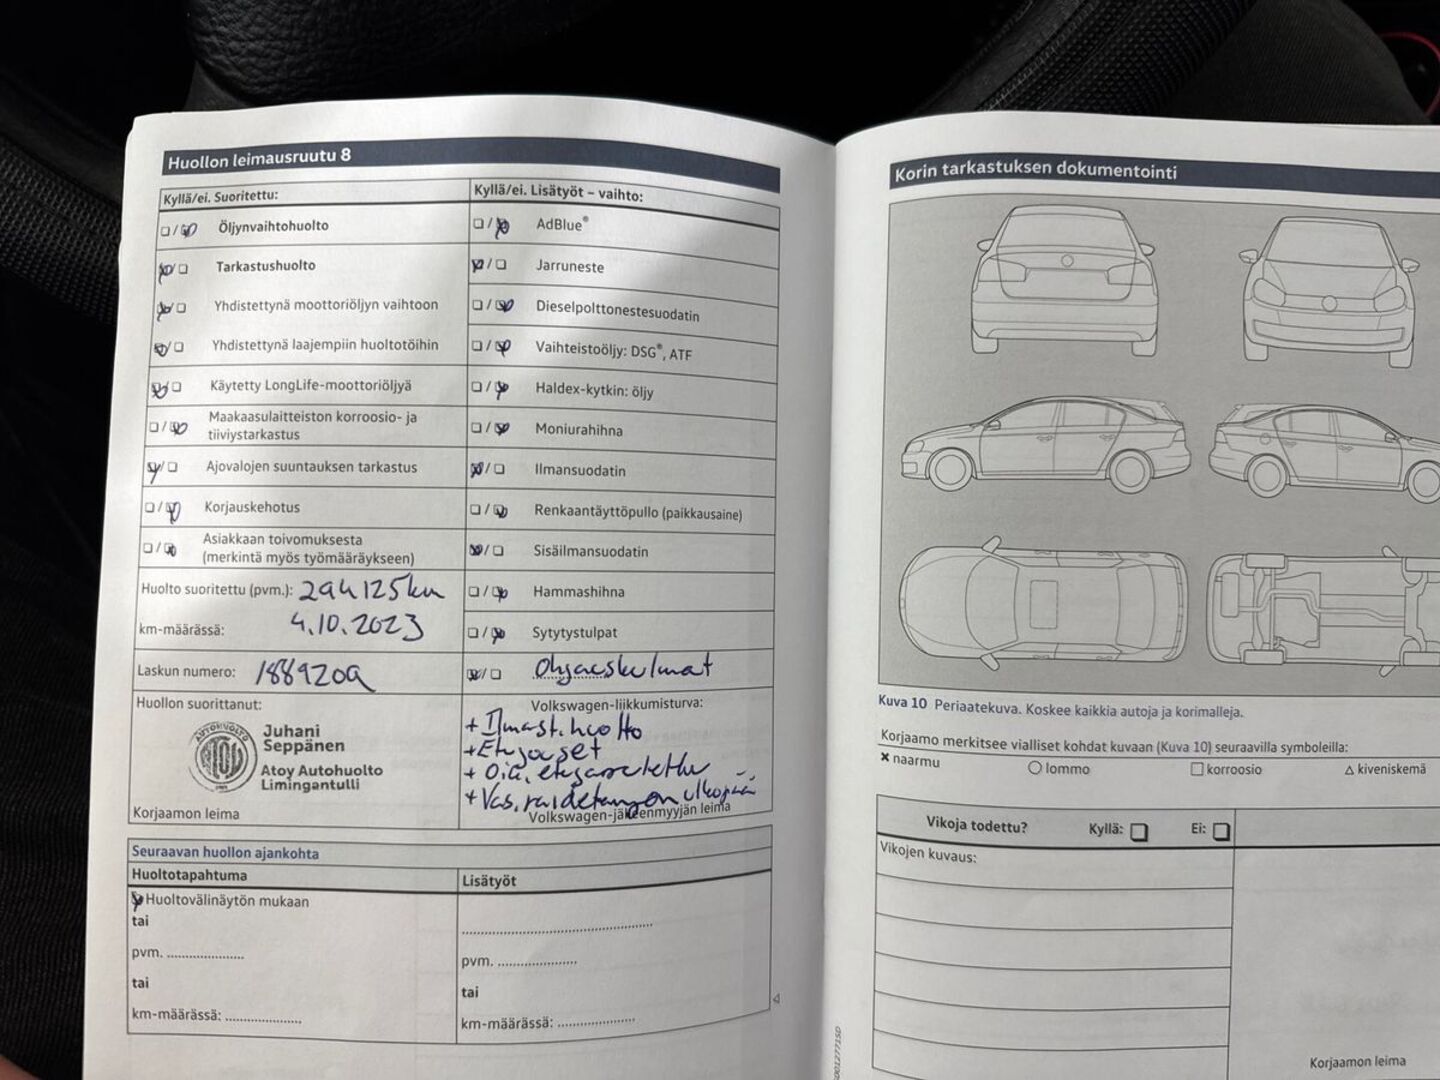 Huollon leimausruutu 8
Kyllä/ei. Suoritettu:
☐/☒ Öljynvaihtohuolto
☒/☐ Tarkastushuolto
☒/☐ Yhdistettynä moottoriöljyn vaihtoon
☒/☐ Yhdistettynä laajempiin huoltotöihin
☒/☐ Käytetty LongLife-moottoriöljyä
☐/☒ Maakaasulaitteiston korroosio- ja
tiiviystarkastus
☒/☐ Ajovalojen suuntauksen tarkastus
☐/☒ Korjauskehotus
☐/☒ Asiakkaan toivomuksesta
(merkintä myös työmääräykseen)
Huolto suoritettu (pvm.): 294125km
km-määrässä: 4.10.2023
Laskun numero: 1889209
Huollon suorittanut:
AUTOHUOLTO
Juhani
Seppänen
Atoy Autohuolto
Limingantulli
Korjaamon leima
Kyllä/ei. Lisätyöt – vaihto:
☐/☒ AdBlue®
☒/☐ Jarruneste
☐/☒ Dieselpolttonestesuodatin
☐/☒ Vaihteistoöljy: DSG®, ATF
☐/☒ Haldex-kytkin: öljy
☐/☒ Moniurahihna
☒/☐ Ilmansuodatin
☐/☒ Renkaantäyttöpullo (paikkausaine)
☒/☐ Sisäilmansuodatin
☐/☒ Hammashihna
☐/☒ Sytytystulpat
☒/☐ Ohjauskulmat
Volkswagen-liikkumisturva:
+ Ilmast.huolto
+ Etujouset
+ Vas. raidetangon ulkopää
Volkswagen-jälleenmyyjän leima
Seuraavan huollon ajankohta
Huoltotapahtuma
Huoltovälinäytön mukaan
tai
pvm. ....................
tai
km-määrässä: ....................
Lisätyöt
pvm. ....................
tai
km-määrässä: ....................
Korin tarkastuksen dokumentointi
Kuva 10 Periaatekuva. Koskee kaikkia autoja ja korimalleja.
Korjaamo merkitsee vialliset kohdat kuvaan (Kuva 10) seuraavilla symboleilla:
× naarmu ○ lommo □ korroosio △ kiveniskemä
Vikoja todettu? Kyllä: ☐ Ei: ☐
Vikojen kuvaus:
Korjaamon leima